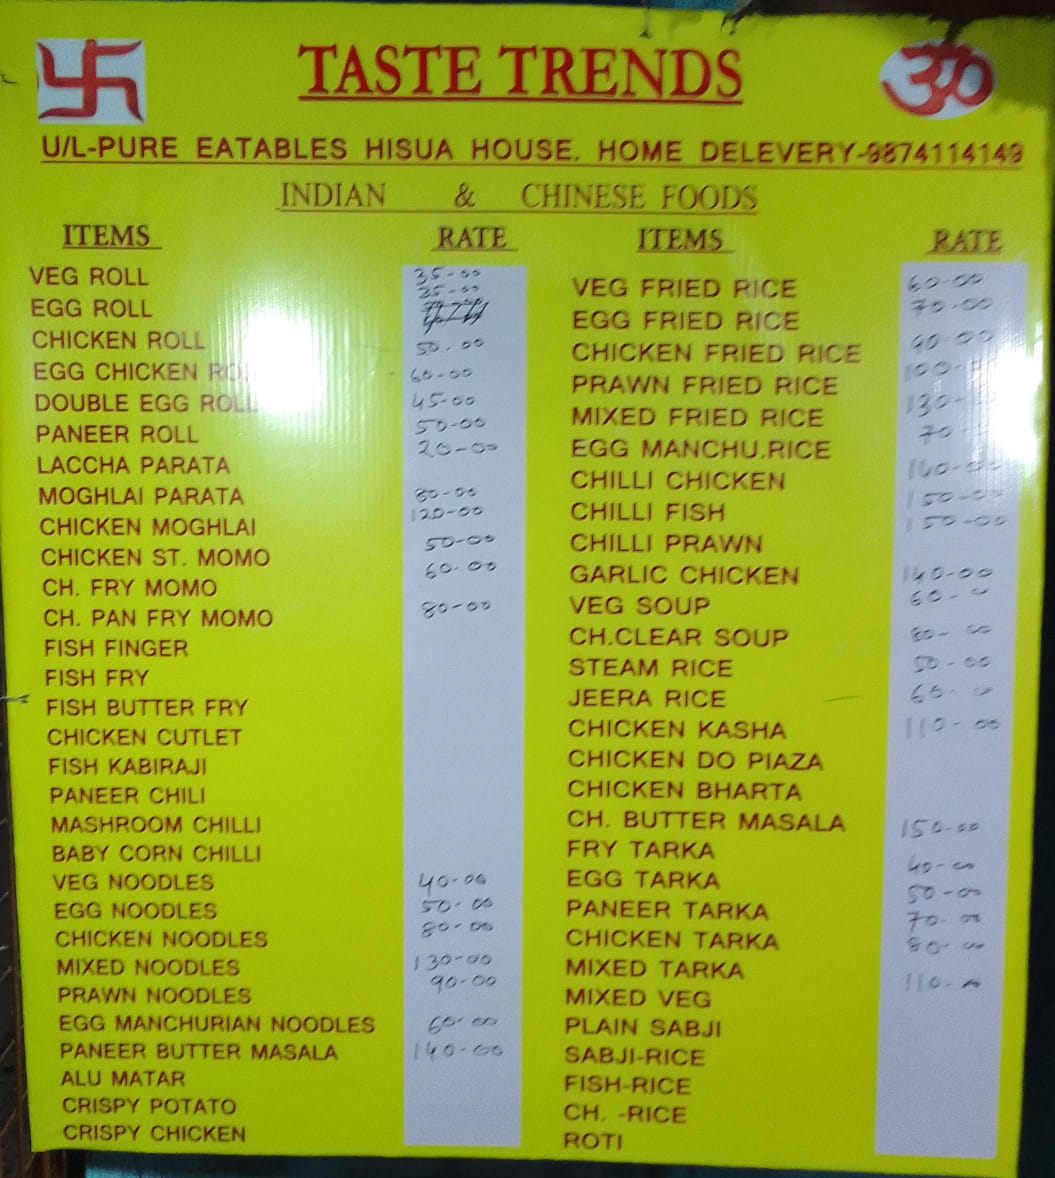 TASTE TRENDS
ॐ
U/L-PURE EATABLES HISUA HOUSE. HOME DELEVERY-9874114149
INDIAN & CHINESE FOODS
ITEMS RATE
VEG ROLL 35-00
EGG ROLL 35-00
CHICKEN ROLL 50.00
EGG CHICKEN ROLL 60-00
DOUBLE EGG ROLL 45-00
PANEER ROLL 50-00
LACCHA PARATA 20-00
MOGHLAI PARATA 80-00
CHICKEN MOGHLAI 120-00
CHICKEN ST. MOMO 50-00
CH. FRY MOMO 60-00
CH. PAN FRY MOMO 80-00
FISH FINGER
FISH FRY
FISH BUTTER FRY
CHICKEN CUTLET
FISH KABIRAJI
PANEER CHILI
MASHROOM CHILLI
BABY CORN CHILLI
VEG NOODLES 40-00
EGG NOODLES 50-00
CHICKEN NOODLES 80-00
MIXED NOODLES 130-00
PRAWN NOODLES 90-00
EGG MANCHURIAN NOODLES 60-00
PANEER BUTTER MASALA 140-00
ALU MATAR
CRISPY POTATO
CRISPY CHICKEN
ITEMS RATE
VEG FRIED RICE 60-00
EGG FRIED RICE 70-00
CHICKEN FRIED RICE 90-00
PRAWN FRIED RICE 100-
MIXED FRIED RICE 130-
EGG MANCHU.RICE 70
CHILLI CHICKEN 140-00
CHILLI FISH 150-00
CHILLI PRAWN 150-00
GARLIC CHICKEN 140-00
VEG SOUP 60-00
CH.CLEAR SOUP 80-00
STEAM RICE 50-00
JEERA RICE 60-00
CHICKEN KASHA 110-00
CHICKEN DO PIAZA
CHICKEN BHARTA
CH. BUTTER MASALA 150-00
FRY TARKA 40-00
EGG TARKA 50-00
PANEER TARKA 70-00
CHICKEN TARKA 80-00
MIXED TARKA 110-00
MIXED VEG
PLAIN SABJI
SABJI-RICE
FISH-RICE
CH. -RICE
ROTI